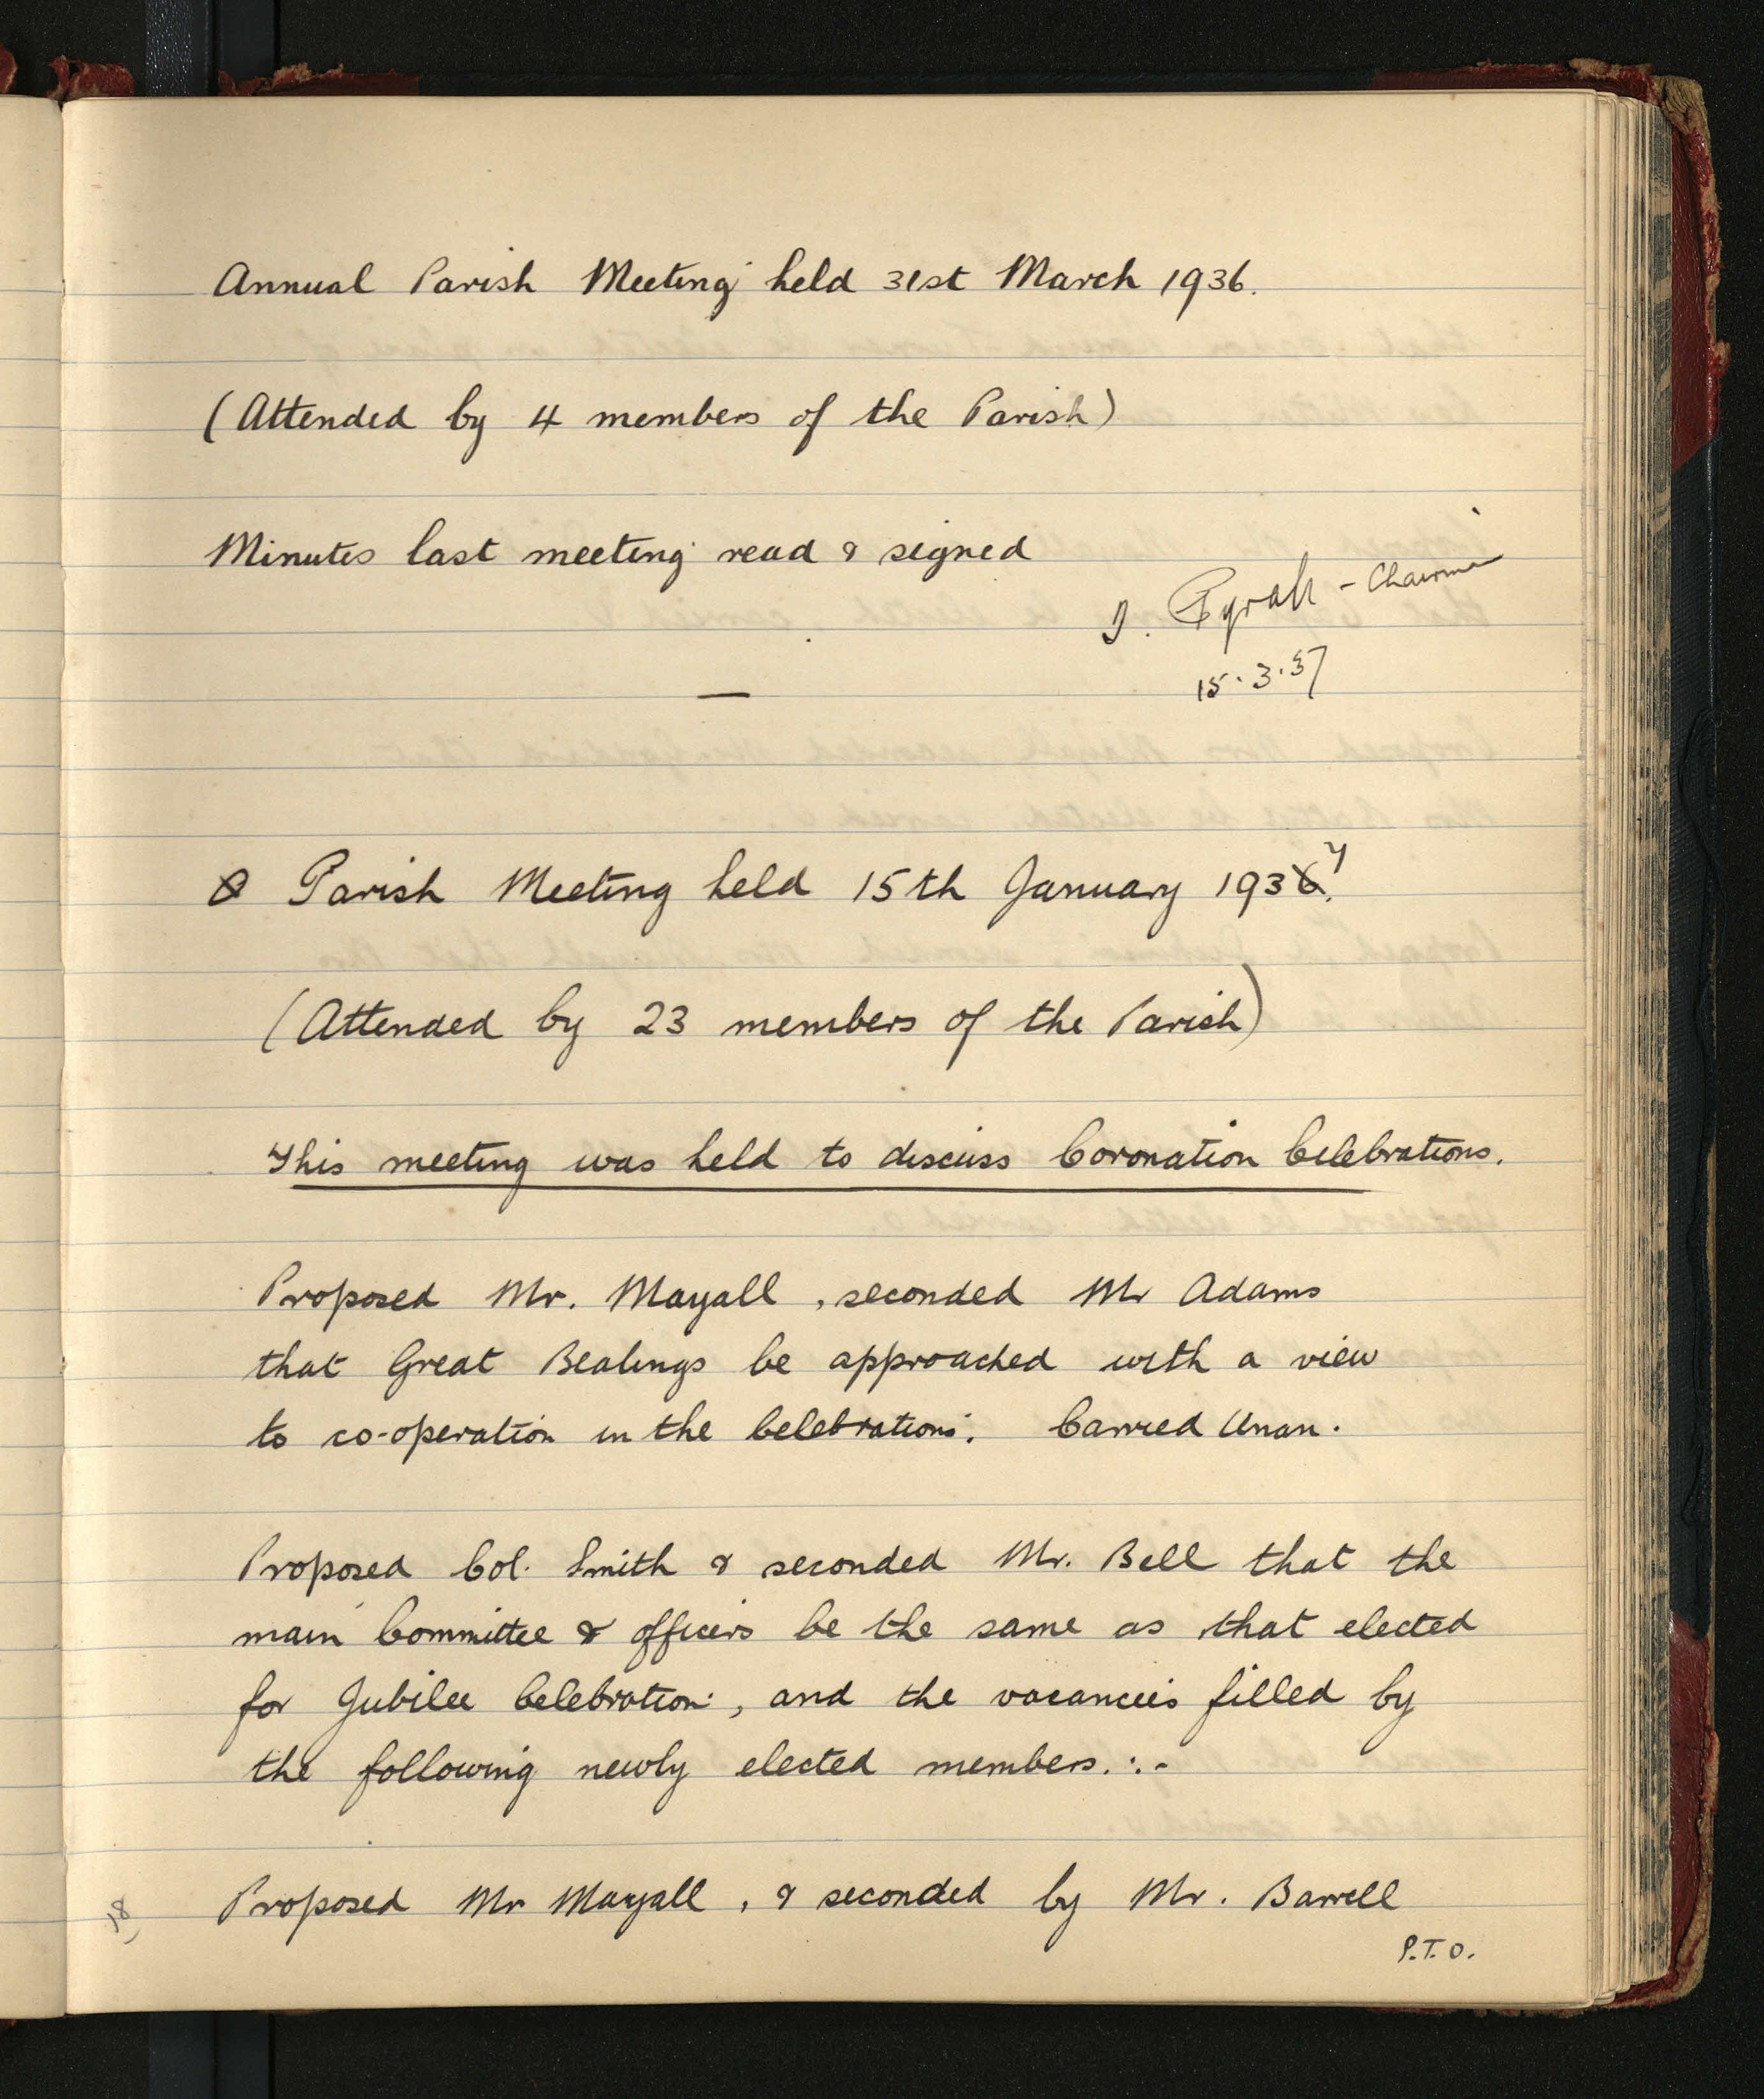 Annual Parish Meeting held 31st March 1936.
(Attended by 4 members of the Parish)
Minutes last meeting read & signed
- Chairman
15.3.37
Parish Meeting held 15th January 1937.
(Attended by 23 members of the Parish)
This meeting was held to discuss Coronation Celebrations.
Proposed Mr. Mayall, seconded Mr Adams
that Great Bealings be approached with a view
to co-operation in the Celebrations. Carried Unan.
Proposed Col. Smith & seconded Mr. Bell that the
main Committee & officers be the same as that elected
for Jubilee Celebration, and the vacancies filled by
the following newly elected members.:-
Proposed Mr Mayall, & seconded by Mr. Barrell
P.T.O.
18